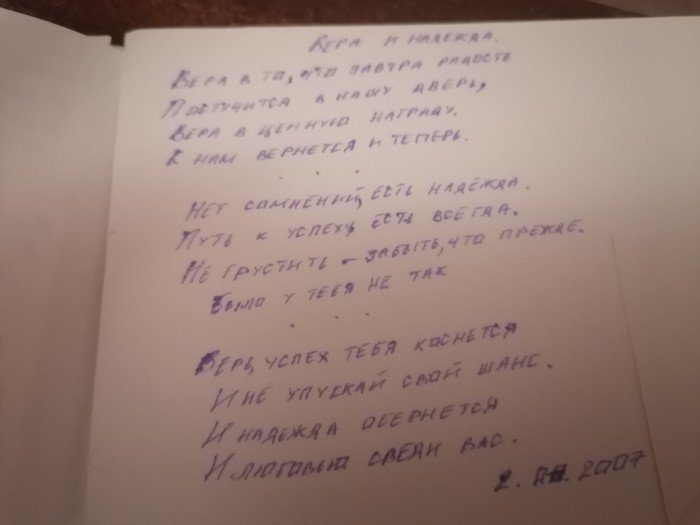 Вера и надежда.
Вера в то, что завтра радость
Постучится в нашу дверь,
Вера в ценную награду.
К нам вернется и теперь.
. . .
Нет сомнений, есть надежда.
Путь к успеху есть всегда.
Не грустить – забыть, что прежде.
Было у тебя не так
. . .
Верь, успех тебя коснется
И не упускай свой шанс.
И надежда обернется
И любовью среди вас.
2. 2007